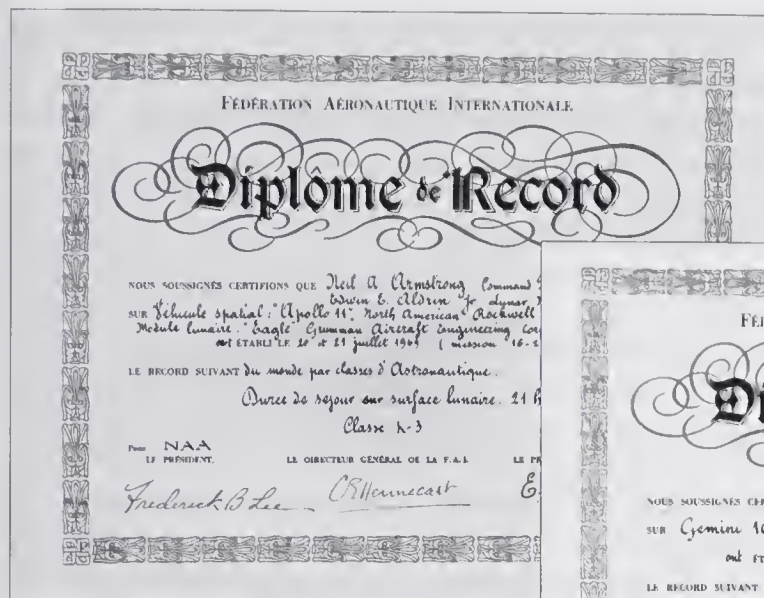 FÉDÉRATION AÉRONAUTIQUE INTERNATIONALE
Diplôme de Record
NOUS SOUSSIGNÉS CERTIFIONS QUE Neil A Armstrong Command
Edwin E. Aldrin jr
SUR Véhicule spatial: "Apollo 11" North American Rockwell
Module lunaire: "Eagle" Grumman Aircraft Engineering Cor
ont ÉTABLI LE 20 et 21 juillet 1969 ( mission 16-2
LE RECORD SUIVANT du monde par classes d'Astronautique.
Durée de séjour sur surface lunaire. 21 h
Classe K-3
Pour NAA
LE PRÉSIDENT, LE DIRECTEUR GÉNÉRAL DE LA F.A.I. LE PR
Frederick B Lee CRHennecart E.
FÉ
Di
NOUS SOUSSIGNÉS CER
SUR Gemini 10
ont ÉT
LE RECORD SUIVANT